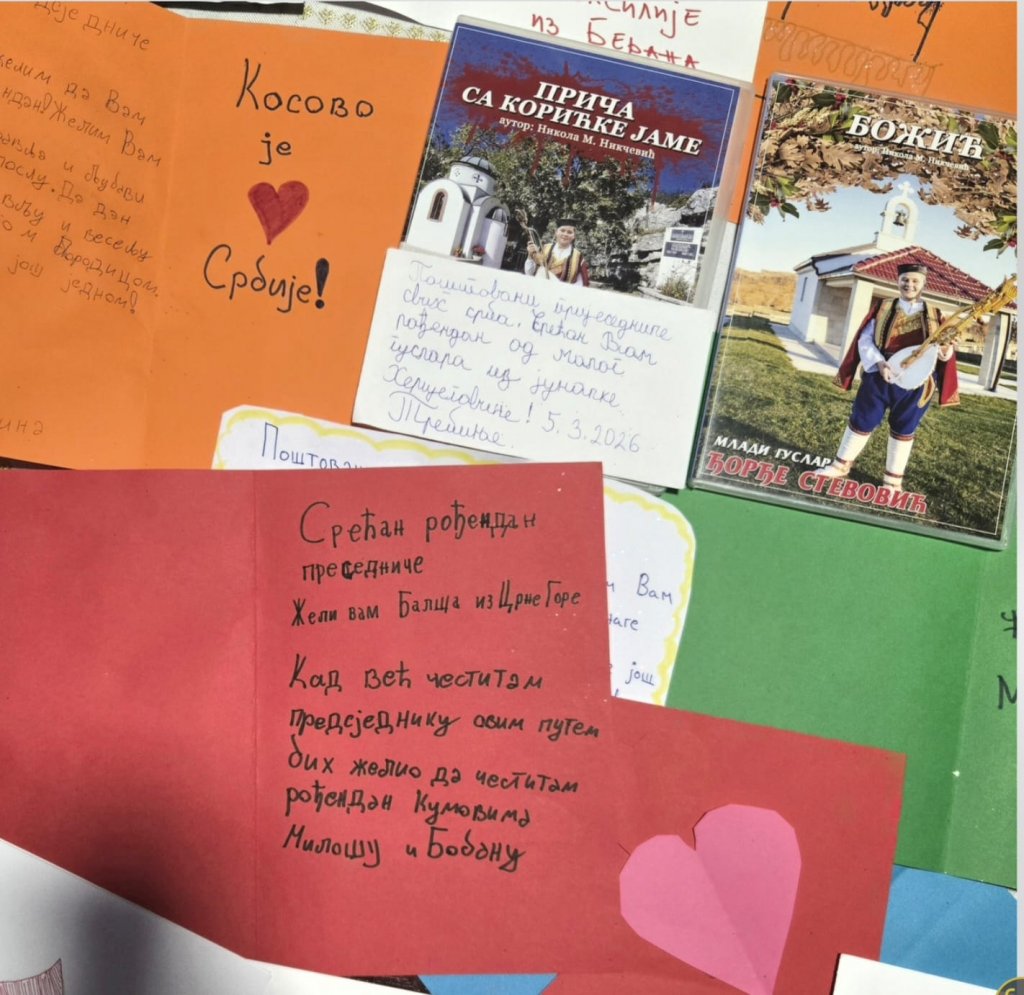 је днич е
желим да Вам
Желим Вам
и љубави
послу. Да дан
и весељу
породицом.
још једном!
Косово
је
Србије!
из Берана
ПРИЧА
СА КОРИЋКЕ ЈАМЕ
аутор: Никола М. Никчевић
Поштовани пријеседниче
свих срба, Срећан Вам
рођендан од малог
гуслара из јуначке
Херцеговине! 5.3.2026
Требиње.
БОЖИЋ
аутор: Никола М. Никчевић
МЛАДИ ГУСЛАР
ЂОРЂЕ СТЕВОВИЋ
Срећан рођендан
преседниче
Жели вам Балша из Црне Горе
Кад већ честитам
предсједнику овим путем
бих желио да честитам
рођендан Кумовима
Милошу и Бобану
Вам
још